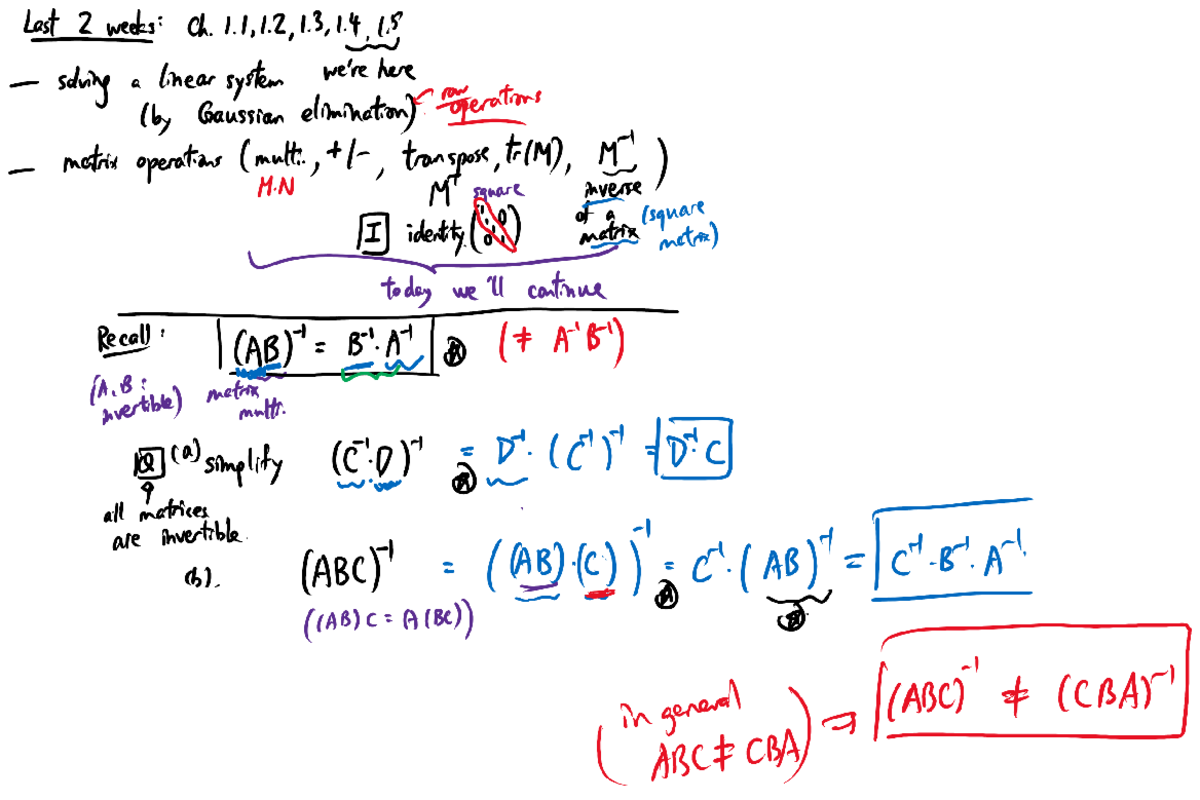 Last 2 weeks: Ch. 1.1, 1.2, 1.3, 1.4, 1.5
we're here
— solving a linear system
(by Gaussian elimination) ← row operations
— matrix operations (multi., +/-, transpose, tr(M), M⁻¹)
M·N
Mᵀ
inverse of a matrix (square matrix)
square
I identity (1 0 1 0 1)
today we'll continue
Recall: (AB)⁻¹ = B⁻¹·A⁻¹ (≠ A⁻¹B⁻¹)
(A, B: invertible)
matrix multi.
Q (a) simplify (C⁻¹·D)⁻¹ = D⁻¹·(C⁻¹)⁻¹ = D⁻¹·C
all matrices are invertible.
(b). (ABC)⁻¹ = ((AB)·(C))⁻¹ = C⁻¹·(AB)⁻¹ = C⁻¹·B⁻¹·A⁻¹.
((AB)C = A(BC))
(in general ABC ≠ CBA) ⇒ (ABC)⁻¹ ≠ (CBA)⁻¹